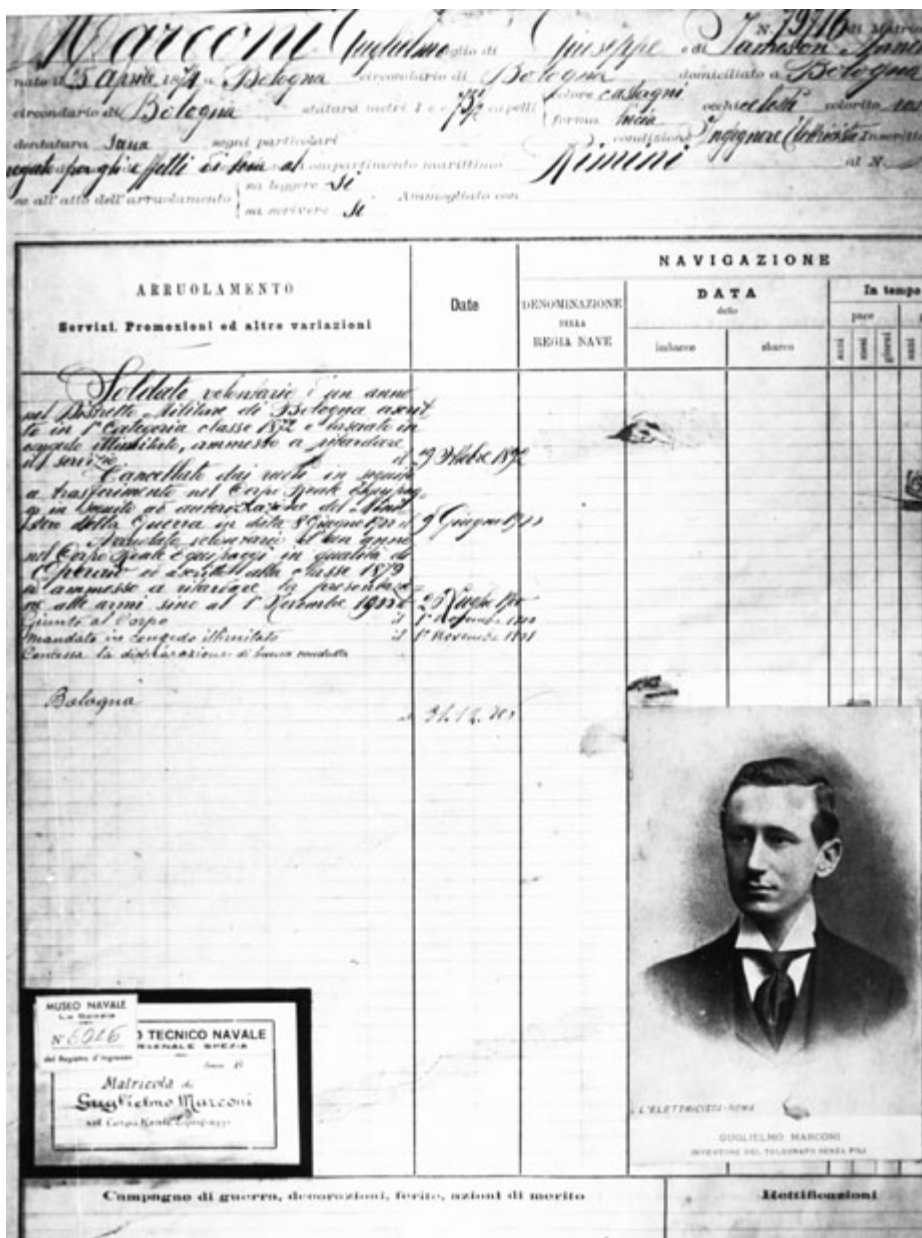 Marconi Guglielmo figlio di Giuseppe e di Jameson Anna N. 19716 di Matric
nato il 25 Aprile 1874 a Bologna circondario di Bologna domiciliato a Bologna
circondario di Bologna statura metri 1 e c capelli colore castagni occhi celesti colorito
forma liscia
dentatura sana segni particolari condizione Ingegnere Elettricista Inscritto
compartimento marittimo Rimini al N.
se all'atto dell'arruolamento sa leggere si Ammogliato con
sa scrivere si
NAVIGAZIONE
ARRUOLAMENTO
Servizi, Promozioni ed altre variazioni
Date
DENOMINAZIONE
DELLA
REGIA NAVE
DATA
dello
imbarco
sbarco
In tempo
pace
anni
mesi
giorni
anni
Soldato volontario di un anno
nel Distretto Militare di Bologna ascrit
to in 1ª Categoria classe 1872 e lasciato in
congedo illimitato, ammesso a ritardare
il servizio il
Cancellato dai ruoli in seguito
a trasferimento nel Corpo Reale Equipag
gi in seguito ad autorizzazione del Mini
stero della Guerra in data 8 Giugno il 9 Giugno
Arruolato volontario di un anno
nel Corpo Reale Equipaggi in qualità di
Operaio ed ascritto alla classe 1879
ed ammesso a ritardare la presentazio
ne alle armi sino al 1º Novembre
Giunto al Corpo il 1º Novembre
Mandato in congedo illimitato il 1º Novembre
Concessa la dichiarazione di buona condotta
Bologna
MUSEO NAVALE
La Spezia
N° 6026
del Registro d'Ingresso
O TECNICO NAVALE
SPEZIA
Matricola di
Guglielmo Marconi
nel Corpo Reale Equipaggi
L'ELETTRICISTA-ROMA
GUGLIELMO MARCONI
INVENTORE DEL TELEGRAFO SENZA FILI
Campagne di guerra, decorazioni, ferite, azioni di merito
Rettificazioni